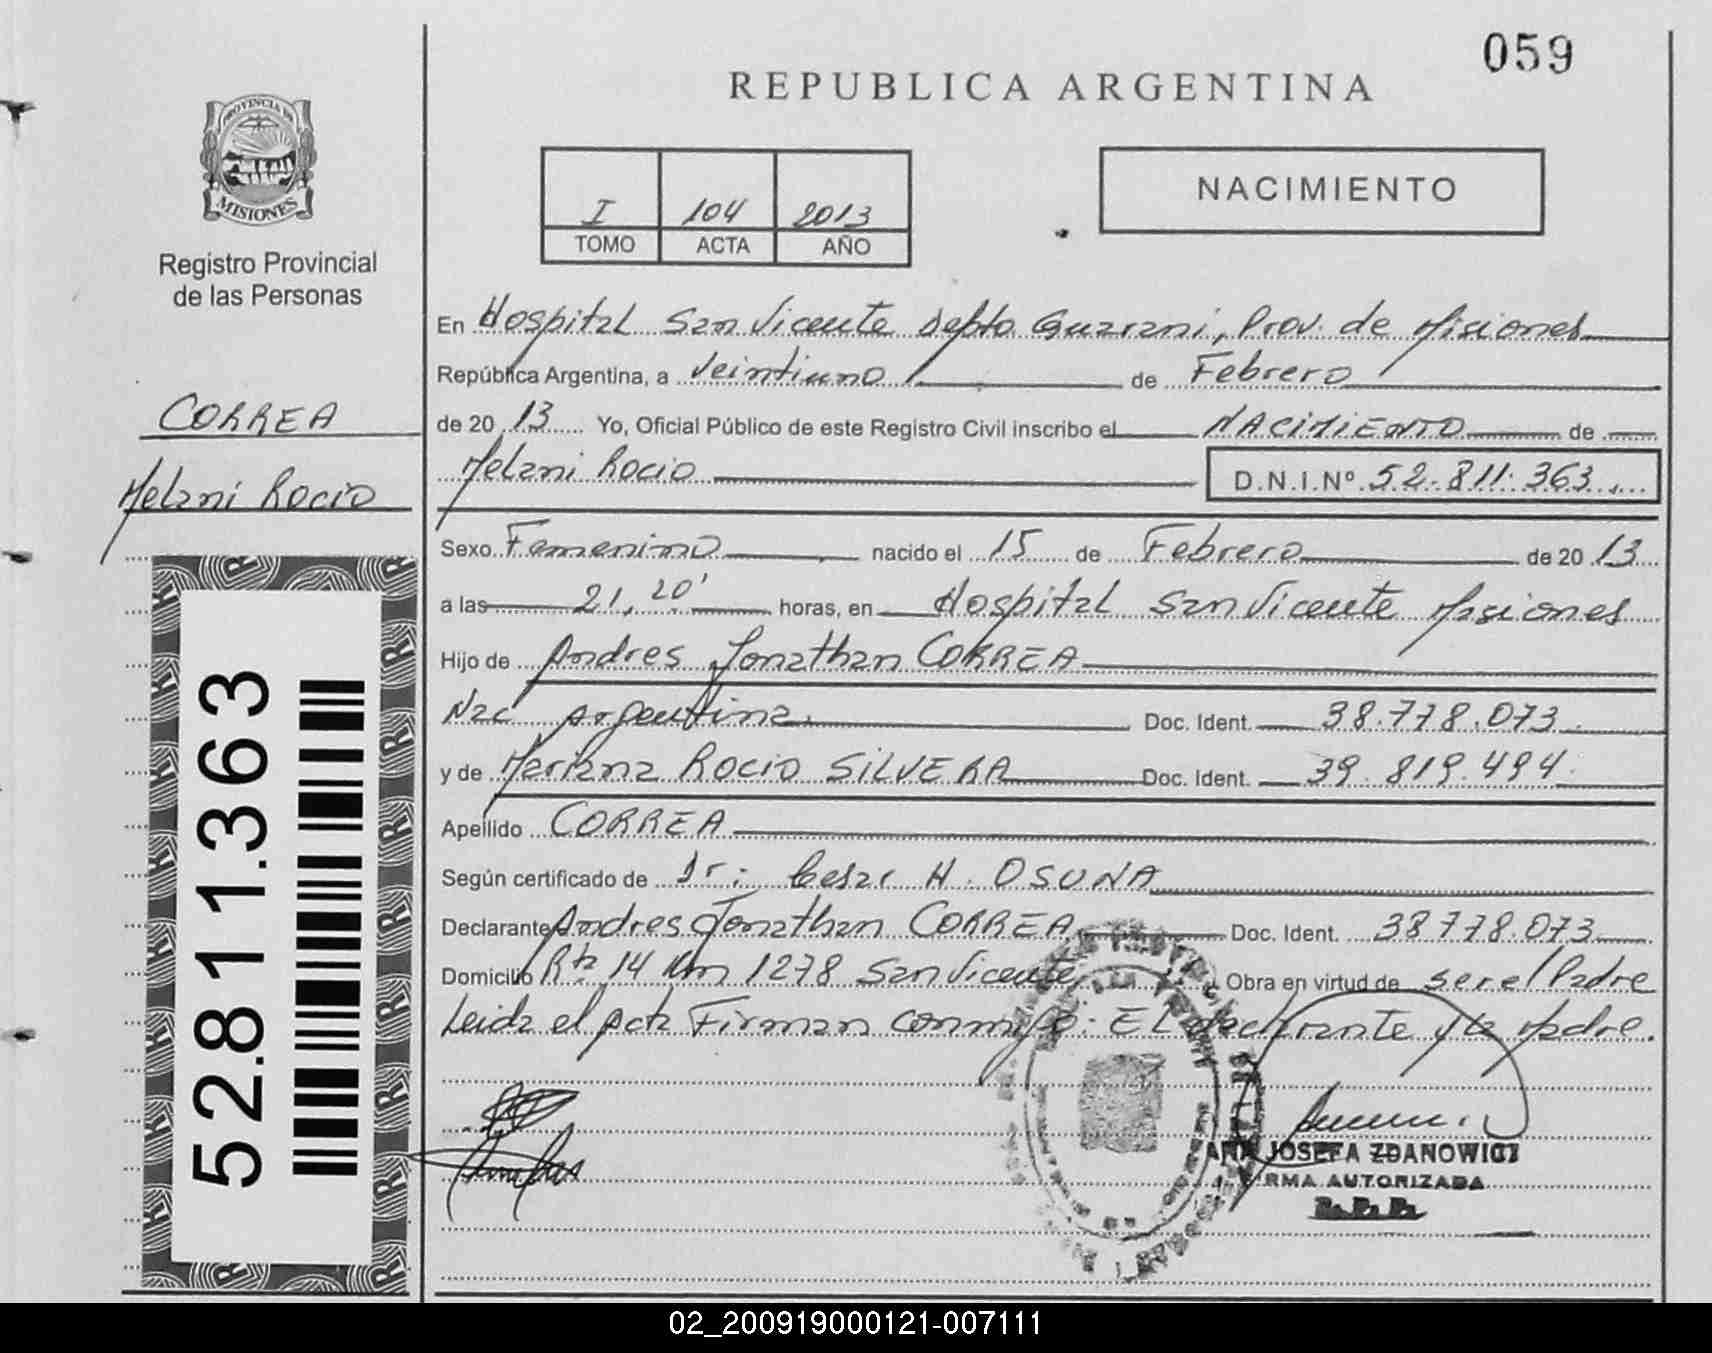 059
REPUBLICA ARGENTINA
PROVINCIA DE
MISIONES
Registro Provincial
de las Personas
I 104 2013
TOMO ACTA AÑO
NACIMIENTO
CORREA
Melani Rocio
52.811.363
En Hospital San Vicente Depto Guarani, Prov. de Misiones
República Argentina, a veintiuno de Febrero
de 20 13 Yo, Oficial Público de este Registro Civil inscribo el NACIMIENTO de
Melani Rocio D.N.I.Nº 52.811.363
Sexo Femenino nacido el 15 de Febrero de 20 13
a las 21,20' horas, en Hospital San Vicente Misiones
Hijo de Andres Jonathan CORREA
Nac Argentina. Doc. Ident. 38.778.073
y de Mariana Rocio SILVERA Doc. Ident. 39.819.494
Apellido CORREA
Según certificado de Dr: Cesar H. OSUNA
Declarante Andres Jonathan CORREA Doc. Ident. 38778.073
Domicilio Rta 14 Km 1278 San Vicente Obra en virtud de ser el Padre
Leida el Acta Firman conmigo: El declarante y la Madre.
ANA JOSEFA ZDANOWICZ
FIRMA AUTORIZADA
R.P.P.
02_200919000121-007111